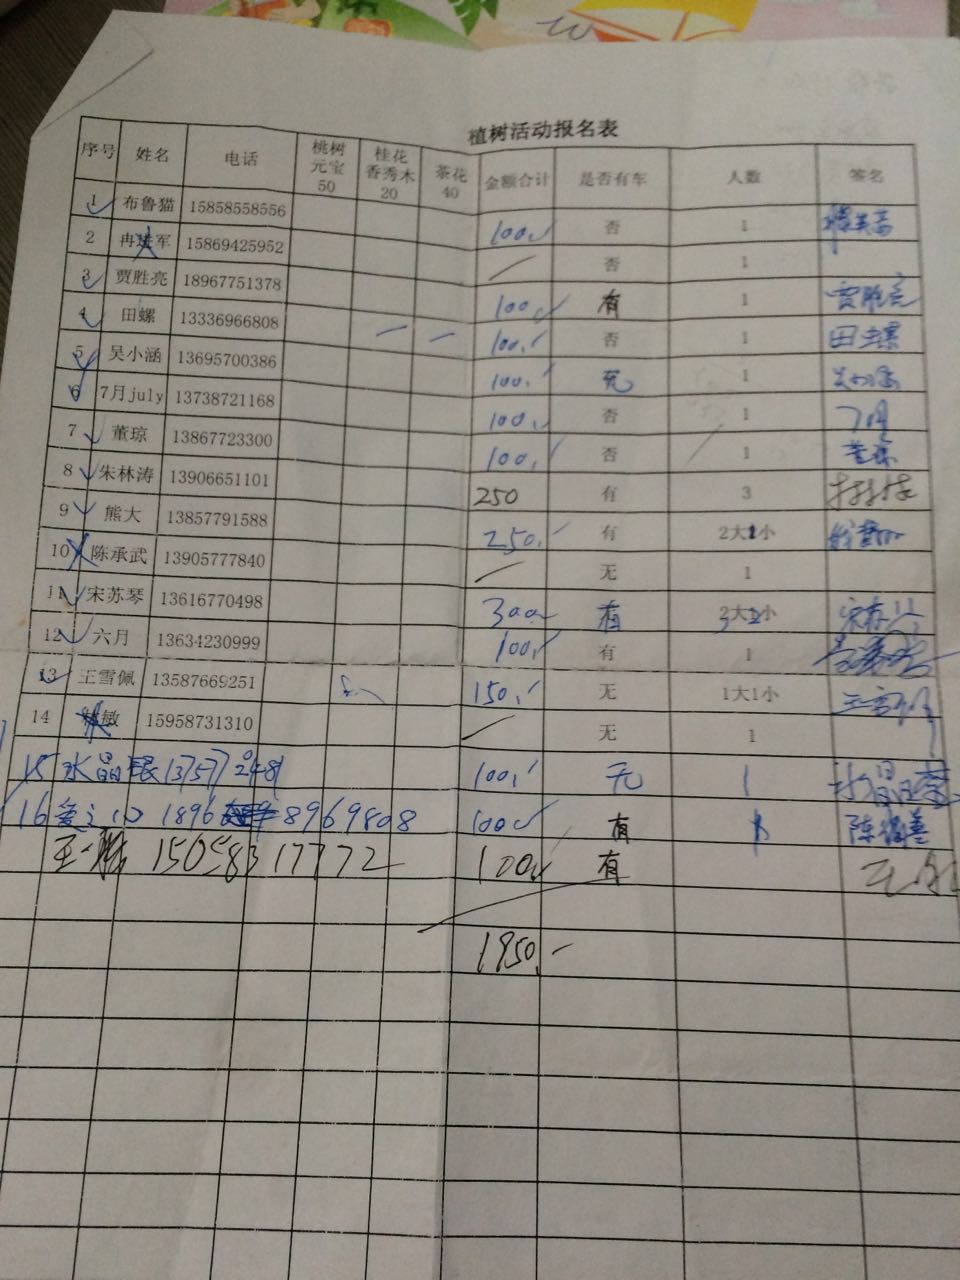 植树活动报名表
序号 姓名 电话 桃树元宝50 桂花香秀木20 茶花40 金额合计 是否有车 人数 签名
1 布鲁猫 15858558556 100 否 1
2 冉 军 15869425952 否 1
3 贾胜亮 18967751378 100 有 1 贾胜亮
4 田螺 13336966808 100 否 1 田螺
5 吴小涵 13695700386 100 无 1 吴小涵
6 7月july 13738721168 100 否 1 7月
7 董琼 13867723300 100 否 1 董琼
8 朱林涛 13906651101 250 有 3
9 熊大 13857791588 250 有 2大1小
10 陈承武 13905777840 无 1
11 宋苏琴 13616770498 300 有 3大 小 宋苏琴
12 六月 13634230999 100 有 1
13 王雪佩 13587669251 150 无 1大1小 王雪佩
14 敏 15958731310 无 1
15 水晶 100 无 1 水晶
16 1896 8969808 100 有 1 陈
王 15058317772 100 有
1950